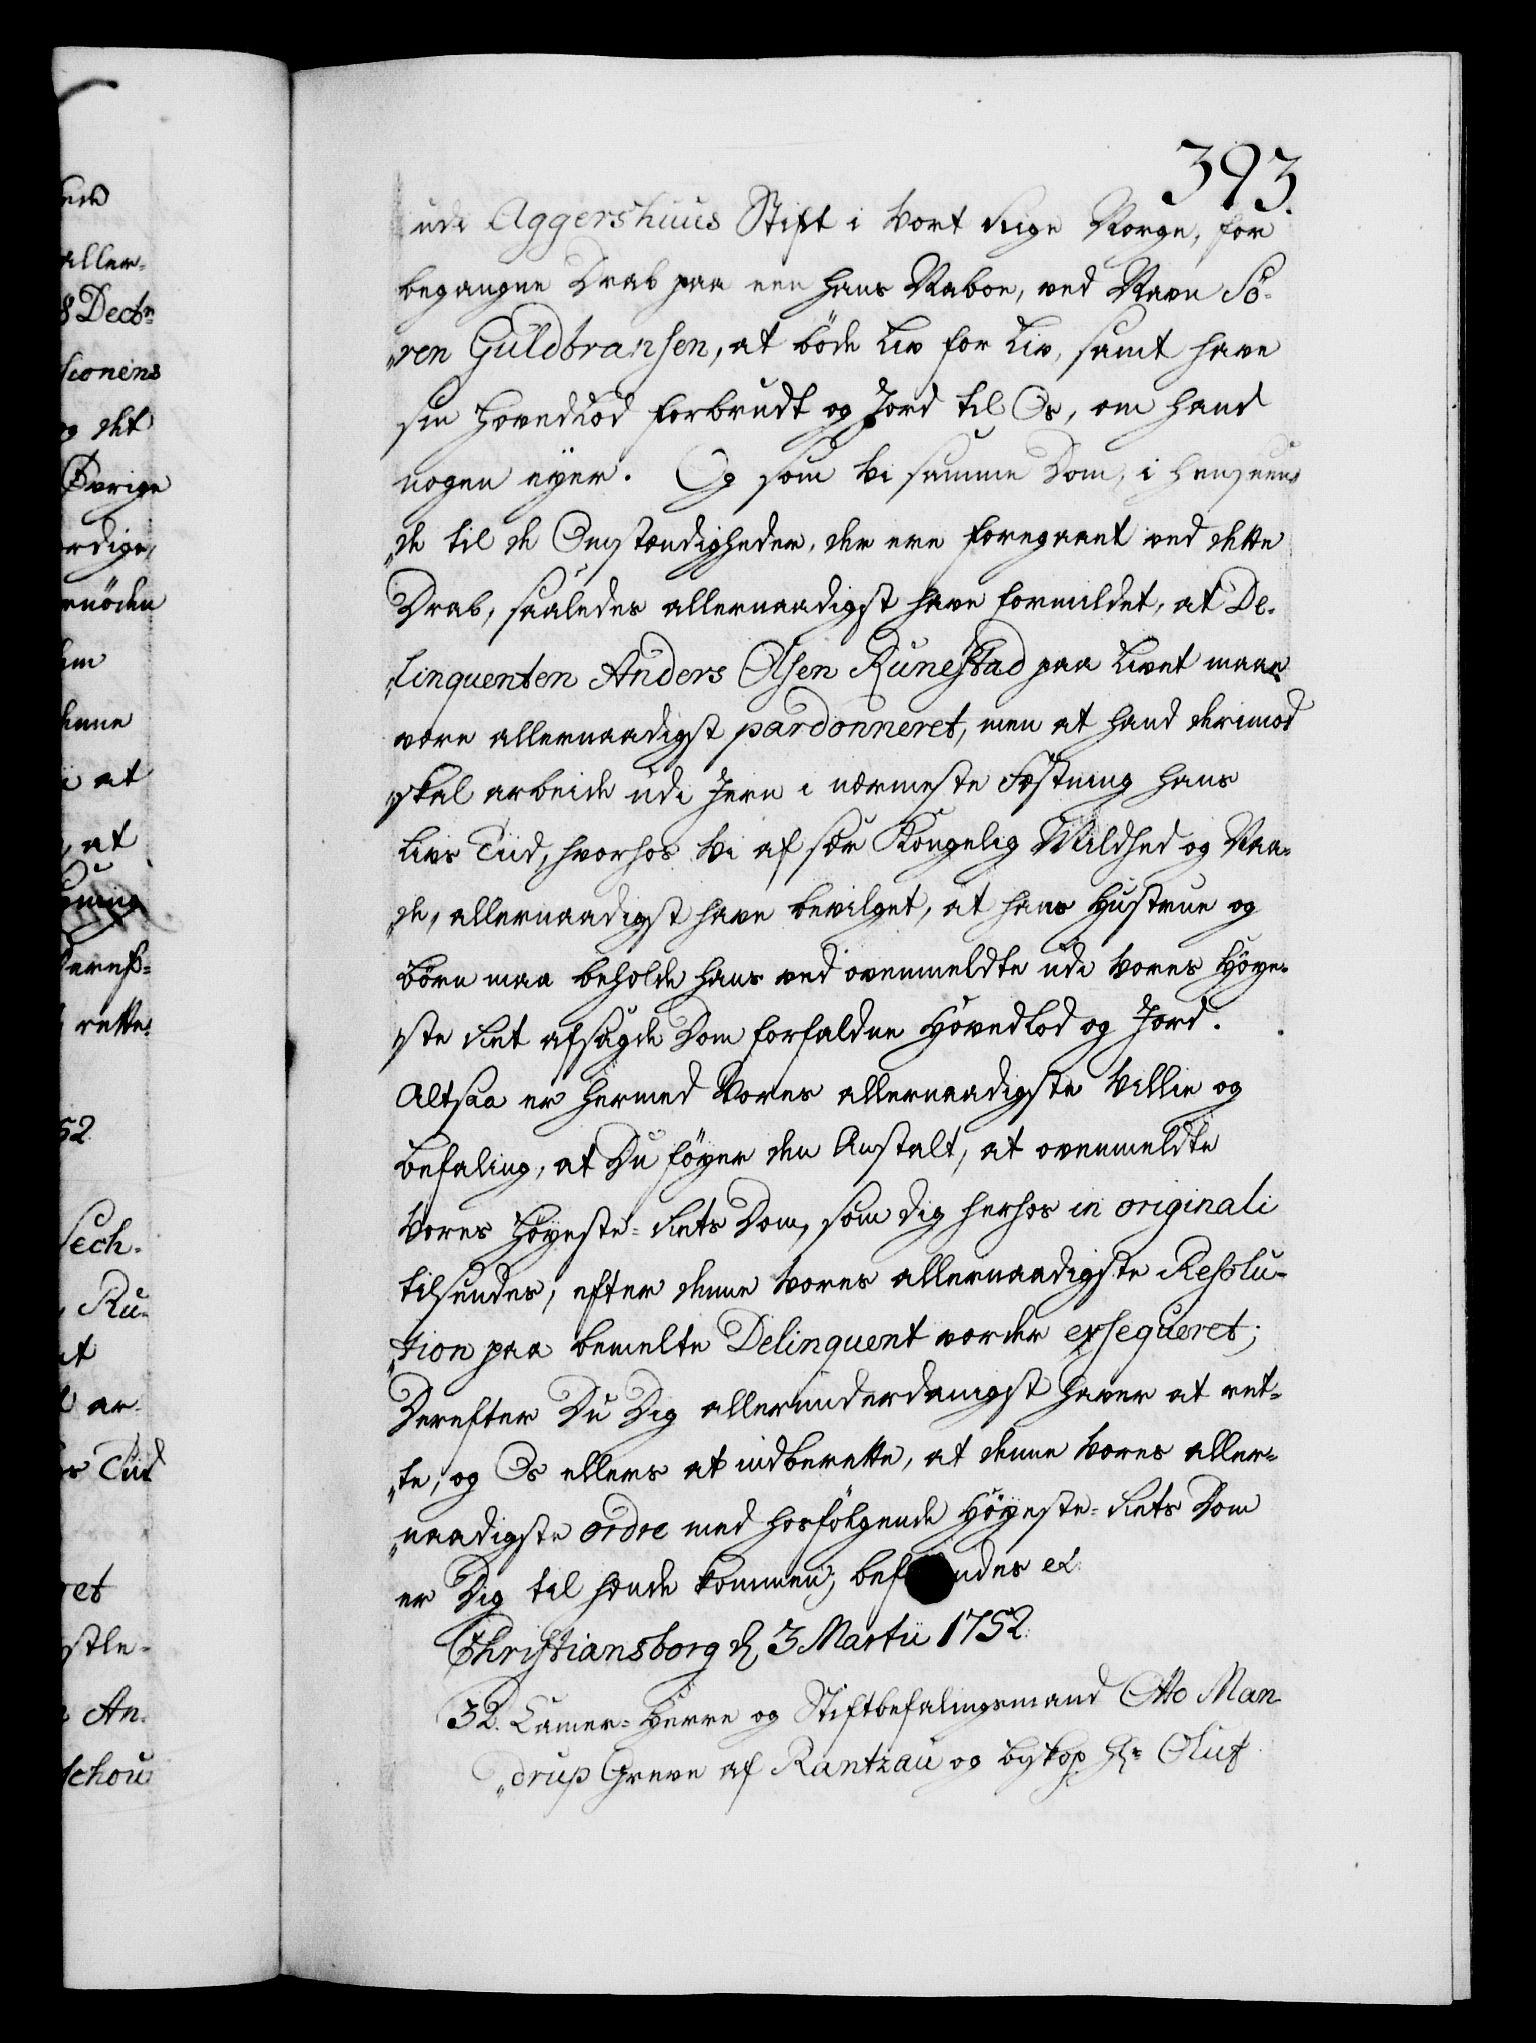 393.
udi Aggershuus Stift i Vort Rige Norge, for
begangne Drab paa een hans Naboe, ved Navn Sö-
„ren Guldbransen, at böde Liv for Liv, samt have
sin Hovedlod forbrudt og Jord til Os, om hand
nogen eyer. Og som Vi samme Dom, i Henseen-
„de til de Omstændigheder, der ere foregaaet ved dette
Drab, saaledes allernaadigst have formildet, at De-
„linquenten Anders Olsen Runestad paa Livet maae
være allernaadigst pardonneret, men at hand derimod
skal arbeide udi Jern i nærmeste Fæstning hans
Livs Tiid, hvorhos Vi af sær Kongelig Mildhed og Naa-
„de, allernaadigst have bevilget, at hans Hustrue og
Börn maa beholde hans ved ovenmeldte udi Vores Höye-
„ste Ret afsagde Dom forfaldne Hovedlod og Jord.
Altsaa er hermed Vores allernaadigste Villie og
Befaling, at Du föyer den Anstalt, at ovenmeldte
Vores Höyeste-Rets Dom, som Dig herhos in originali
tilsendes, efter denne Vores allernaadigste Resolu-
„tion paa bemelte Delinquent vorder exsequeret;
Derefter Du Dig allerunderdanigst haver at ret-
„te, og Os ellers at indberette, at denne Vores aller-
„naadigste ordre med hosfölgende Höyeste-Rets Dom
er Dig til hænde kommen; Bef ndes etc.
Christiansborg d. 3 Martii 1752.
32. Camer-Herre og Stiftbefalingsmand Otto Man-
„drup Greve af Rantzau og Biskop Hr. Oluf